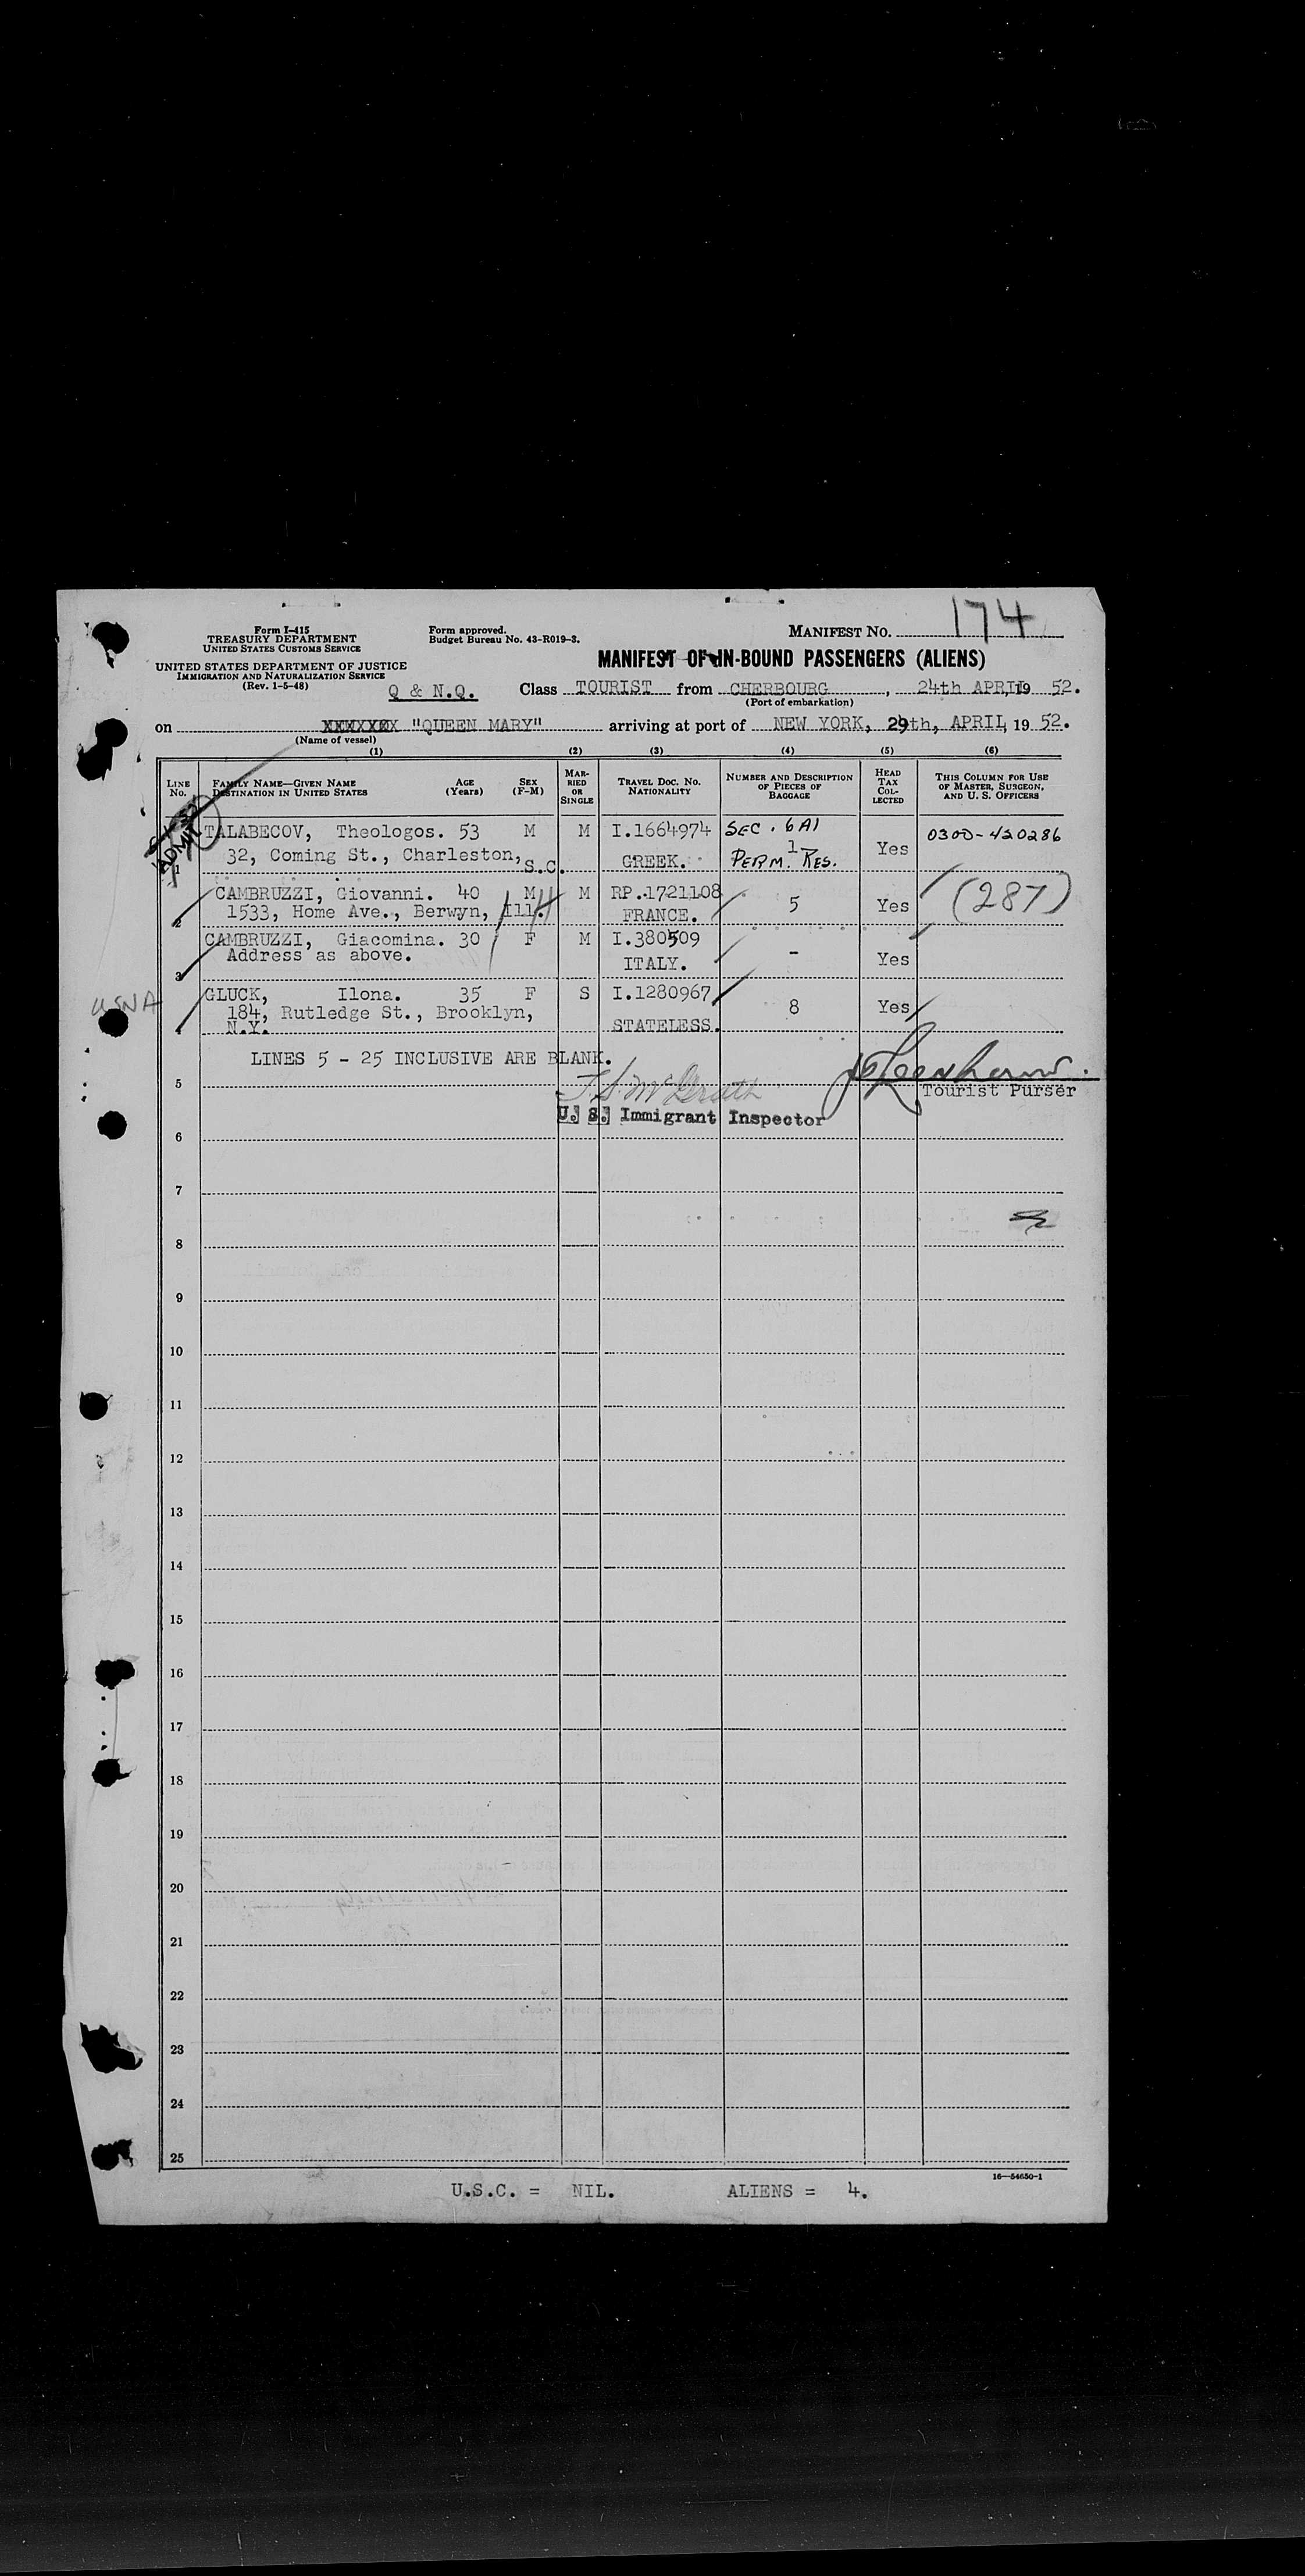 Form I-415
TREASURY DEPARTMENT
UNITED STATES CUSTOMS SERVICE
UNITED STATES DEPARTMENT OF JUSTICE
IMMIGRATION AND NATURALIZATION SERVICE
(Rev. 1-5-48)
Form approved.
Budget Bureau No. 43-R019-3.
MANIFEST NO. 174
MANIFEST OF IN-BOUND PASSENGERS (ALIENS)
Q & N.Q. Class TOURIST from CHERBOURG, 24th APRIL 19 52.
(Port of embarkation)
on "QUEEN MARY" arriving at port of NEW YORK, 29th, APRIL, 19 52.
(Name of vessel)
(1) (2) (3) (4) (5) (6)
LINE NO.
FAMILY NAME—GIVEN NAME
DESTINATION IN UNITED STATES
AGE (Years)
SEX (F-M)
MARRIED OR SINGLE
TRAVEL DOC. NO. NATIONALITY
NUMBER AND DESCRIPTION OF PIECES OF BAGGAGE
HEAD TAX COLLECTED
THIS COLUMN FOR USE OF MASTER, SURGEON, AND U. S. OFFICERS
ADMIT
1 TALABECOV, Theologos. 53 M M I.1664974 SEC. 6A1 0300-420286
32, Coming St., Charleston, S.C. GREEK. 1 PERM. RES. Yes
2 CAMBRUZZI, Giovanni. 40 M M RP.1721108 5 Yes (287)
1533, Home Ave., Berwyn, Ill. FRANCE.
3 CAMBRUZZI, Giacomina. 30 F M I.380509 - Yes
Address as above. ITALY.
USNA
4 GLUCK, Ilona. 35 F S I.1280967 8 Yes
184, Rutledge St., Brooklyn,
N.Y. STATELESS.
LINES 5 - 25 INCLUSIVE ARE BLANK.
5
Tourist Purser
U. S. Immigrant Inspector
6
7
8
9
10
11
12
13
14
15
16
17
18
19
20
21
22
23
24
25
16—54650-1
U.S.C. = NIL. ALIENS = 4.